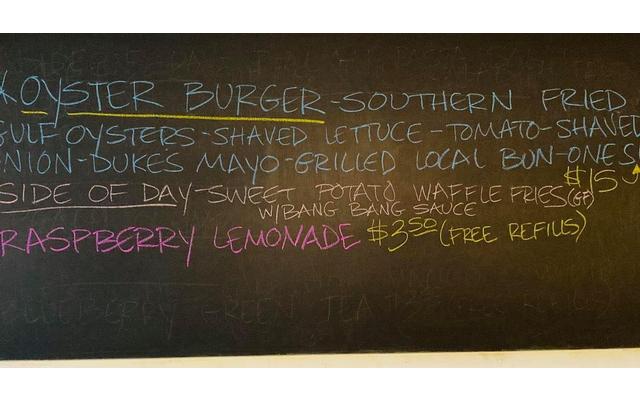 OYSTER BURGER-SOUTHERN FRIED
GULF OYSTERS-SHAVED LETTUCE-TOMATO-SHAVED
ONION-DUKES MAYO-GRILLED LOCAL BUN-ONE SI
$15
SIDE OF DAY-SWEET POTATO WAFFLE FRIES (GF)
W/BANG BANG SAUCE
RASPBERRY LEMONADE $3.50 (FREE REFILLS)
BLUEBERRY GREEN TEA